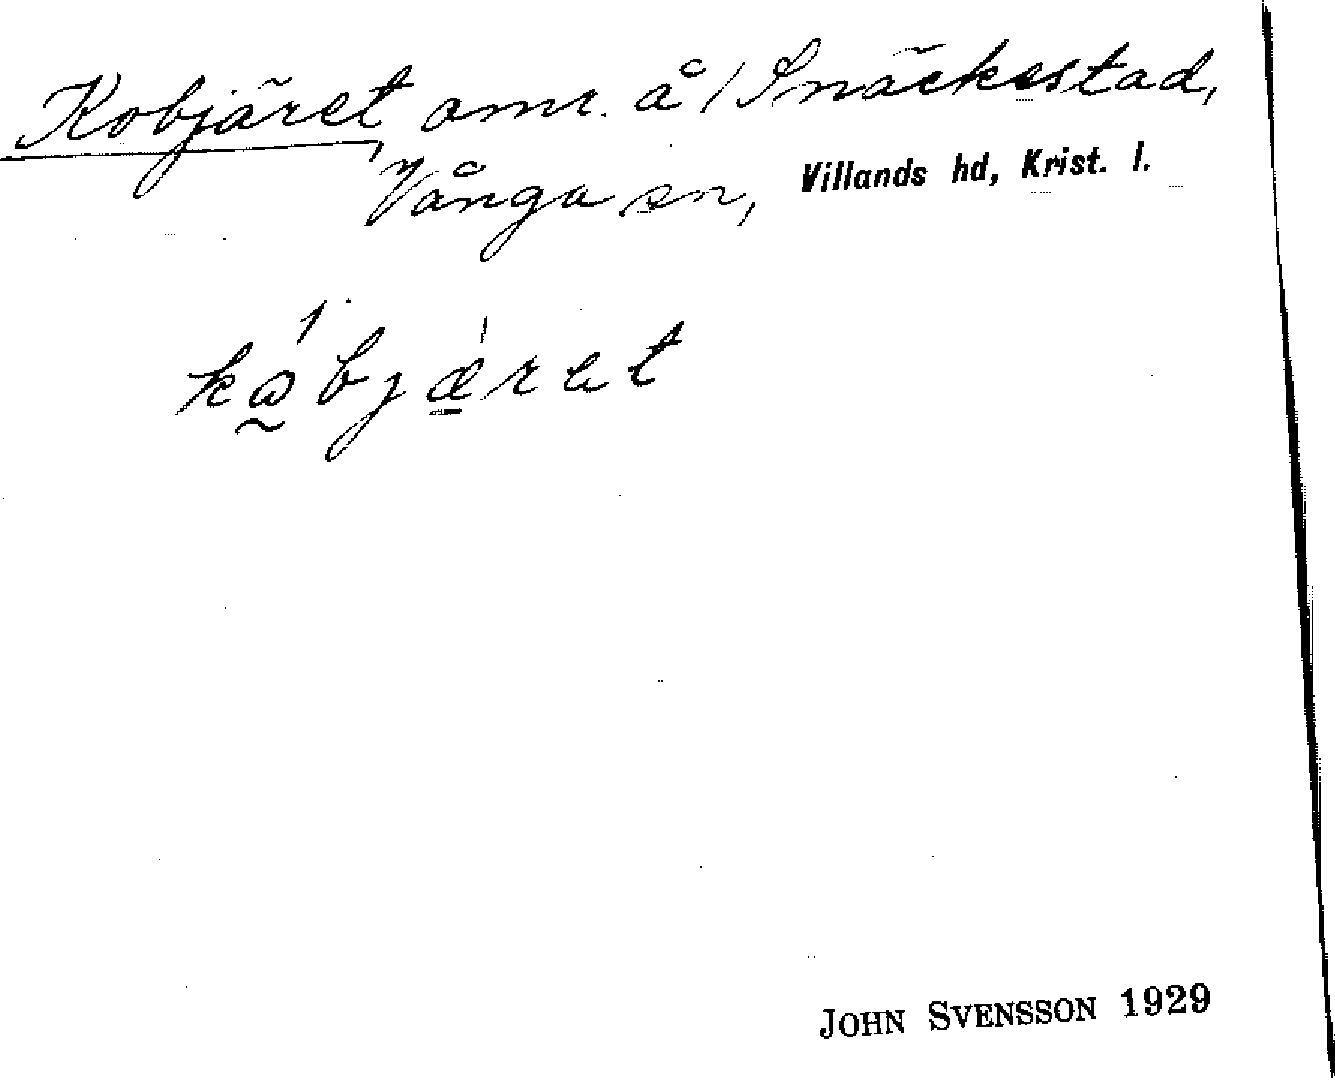 Kobjäret, omr. å / Snäckestad,
Vånga sn, Villands hd, Krist. l.
kåbjæret
JOHN SVENSSON 1929